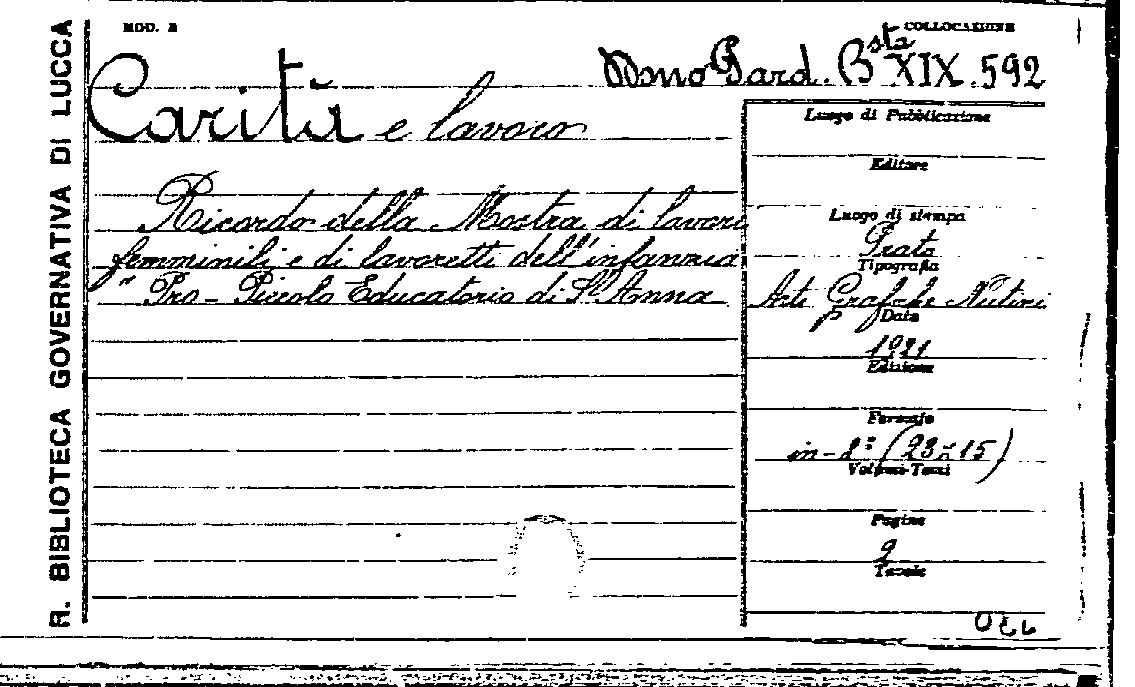 R. BIBLIOTECA GOVERNATIVA DI LUCCA
MOD. B
COLLOCAZIONE
Pard. Bsta XIX. 592
Carità e lavoro
Ricordo della Mostra di lavori
femminili e di lavoretti dell'infanzia
" Pro - Piccolo Educatorio di St Anna
Luogo di Pubblicazione
Editore
Luogo di stampa
Prato
Tipografia
Arti Grafiche Nutini
Data
1921
Edizione
Formato
in-8º (23x15)
Volumi-Tomi
Pagine
9
Tavole